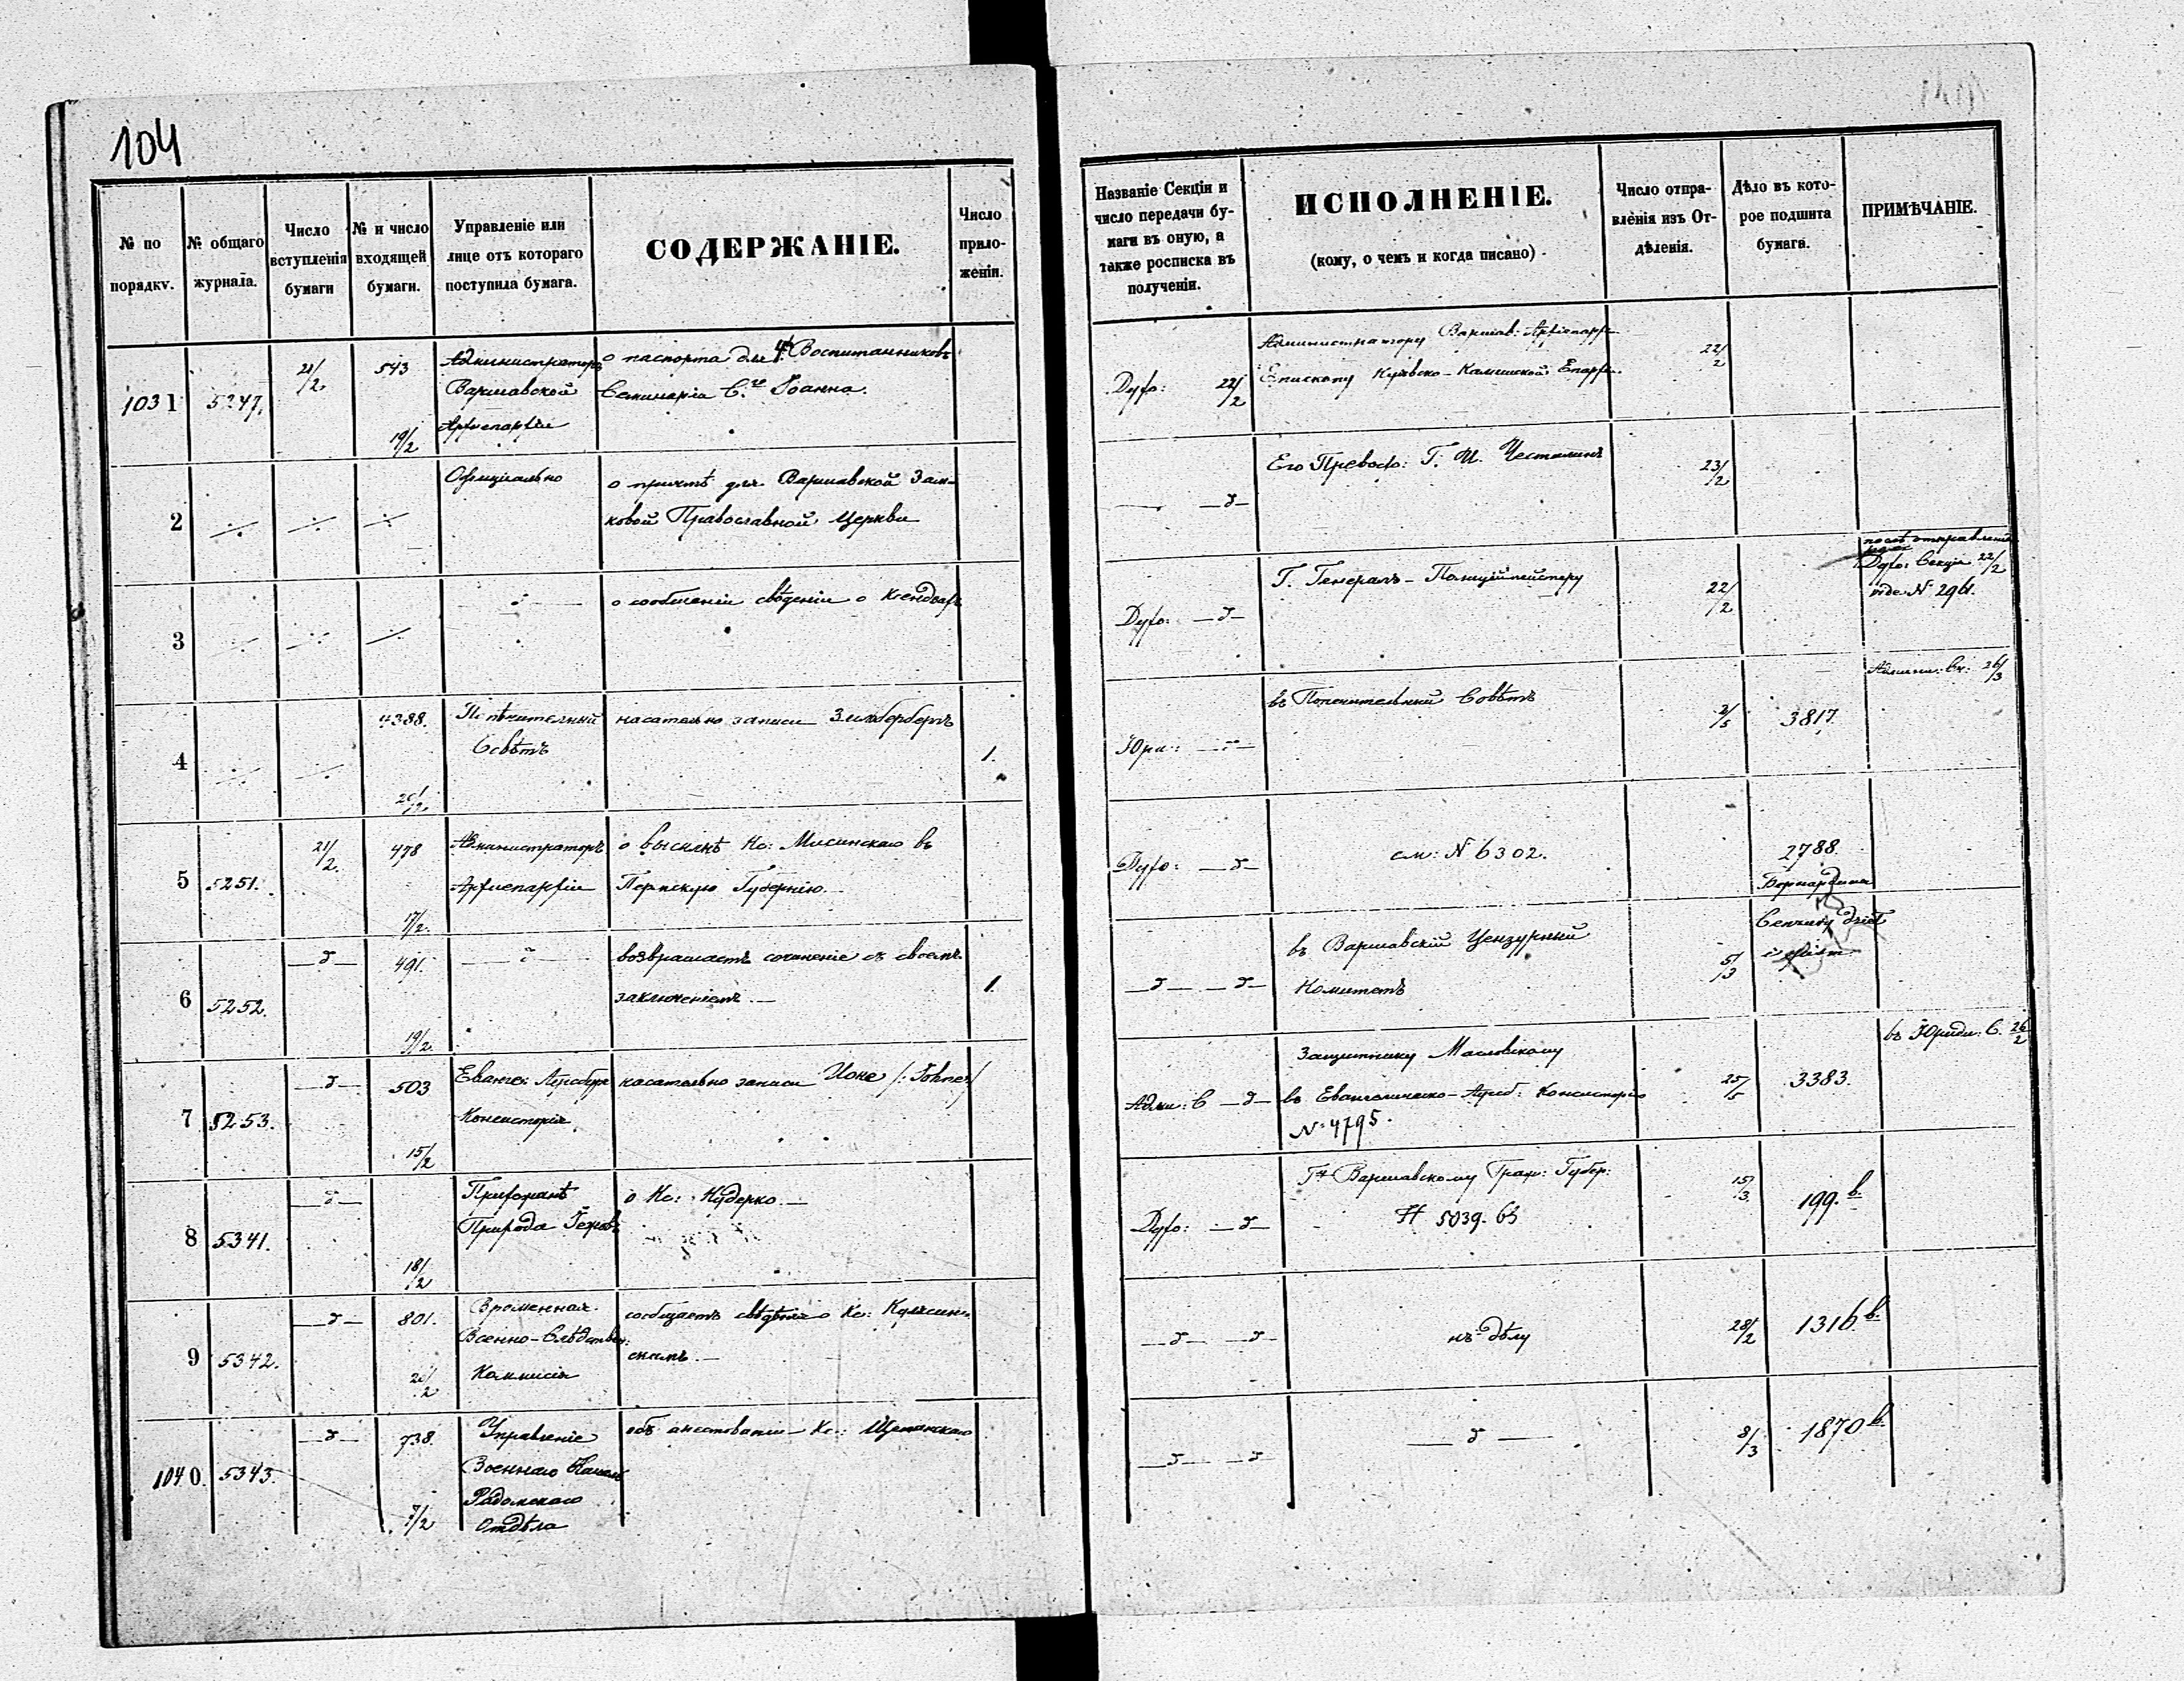 104
№ по порядку.
№ общаго журнала.
Число вступленія бумаги
№ и число входящей бумаги.
Управленіе или лице отъ котораго поступила бумага.
СОДЕРЖАНІЕ.
Число приложеніи.
Названіе Секціи и число передачи бумаги въ оную, а также росписка въ полученіи.
ИСПОЛНЕНІЕ.
(кому, о чемъ и когда писано)
Число отправлѐнія изъ Отдѣленія.
Дѣло въ которое подшита бумага.
ПРИМѢЧАНІЕ.
1031 5247. 21/2 543 19/2
Администраторъ
Варшавской
Архіепархіи
о паспорта для 4х Воспитанниковъ
Семинаріи С.го Іоанна.
Духо: 22/2
Администратору Варшав: Архіепархіи
Епископу Куявско-Калишской Епархіи.
22/2
2
Офиціально
о причтѣ для Варшавской Зам-
ковой Православной Церкви
Его Превосхо: Г. И.
23/2
3
о сообщеніи свѣденіи о Ксендзахъ
Духо:
Г. Генералъ-Полиціймейстеру
22/2
послѣ отправленія
Духо: Секція 22/2
vide N 2961.
4 4388. 20/2
Попѣчительный
Совѣтъ
касательно записи Зильберберга
1.
Юри:
въ Попечительный Совѣтъ
2/5 3817.
Админи: Ск: 26/3
5 5251. 21/2 478 17/2.
Администраторъ
Архіепархіи
о высылкѣ Кс: Мисинскаго въ
Пермскую Губернію.
Духо:
см: N 6302.
2788.
Бернардина
6 5252. 491. 19/2.
возвращаетъ сочиненіе съ своемъ
заключеніемъ.
1.
въ Варшавскій Цензурный
Комитетъ
5/3
7 5253. 503 15/2
Еванге: Аугсбург
Консисторія.
касательно записи Іоне /: Johne :/
Адми: С
Защитнику Масловскому
въ Евангелическо-Аугсб: Консисторію
N 4795.
25/5 3383.
въ Юриди: С. 26/2
8 5341. 18/2
Прихожанѣ
Прихода
о Кс: Кудерко.
Духо:
Гну Варшавскому Граж: Губер:
N 5039. 65
15/3 199.в.
9 5342. 801. 20/2
Временная
Военно-Слѣдствен:
Коммисія
сообщаетъ свѣдѣнія о Кс: Кулесин-
скомъ.
къ дѣлу
28/2 1316.в.
1040. 5343. 738. 7/2
Управленіе
Военнаго Начал:
Радомскаго
Отдѣла
объ арестованіи Кс:
8/3 1870 в.